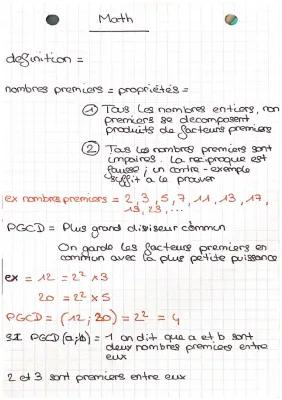 Math
definition =
nombres premiers = propriétés =
① Tous les nombres entiers, non
premiers se decomposent
produits de facteurs premiers
② Tous les nombres premiers sont
impaires. La reciproque est
fausse ; un contre-exemple
suffit a le prouver
ex nombres premiers = 2, 3, 5, 7, 11, 13, 17,
19, 23, ...
PGCD = Plus grand diviseur commun
On garde les facteurs premiers en
commun avec la plus petite puissance
ex = 12 = 2² × 3
20 = 2² × 5
PGCD = (12; 20) = 2² = 4
SI PGCD (a;b) = 1 on dit que a et b sont
deux nombres premiers entre
eux
2 et 3 sont premiers entre eux